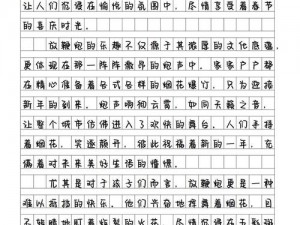 让人们沉浸在愉悦的氛围中，尽情享受着春节
的喜庆时光。
放鞭炮的乐趣不仅源于其浓厚的文化底蕴，
更体现在那一阵阵激昂的炮声中。多多户户都
在精心准备着各式各样的烟花爆竹，只为迎接
新年的到来。炮声响彻云霄，如同天籁之音，
让整个城市仿佛进入了欢快的舞台。人们手持
着烟花，笑逐颜开，彼此祝福着新的一年，充
满着对未来美好生活的憧憬。
尤其是对于孩子们而言，放鞭炮更是一种
难以抵挡的快乐。他们举着烟花，目
不转睛地盯着炫丽的火花，尽情沉浸在无忧